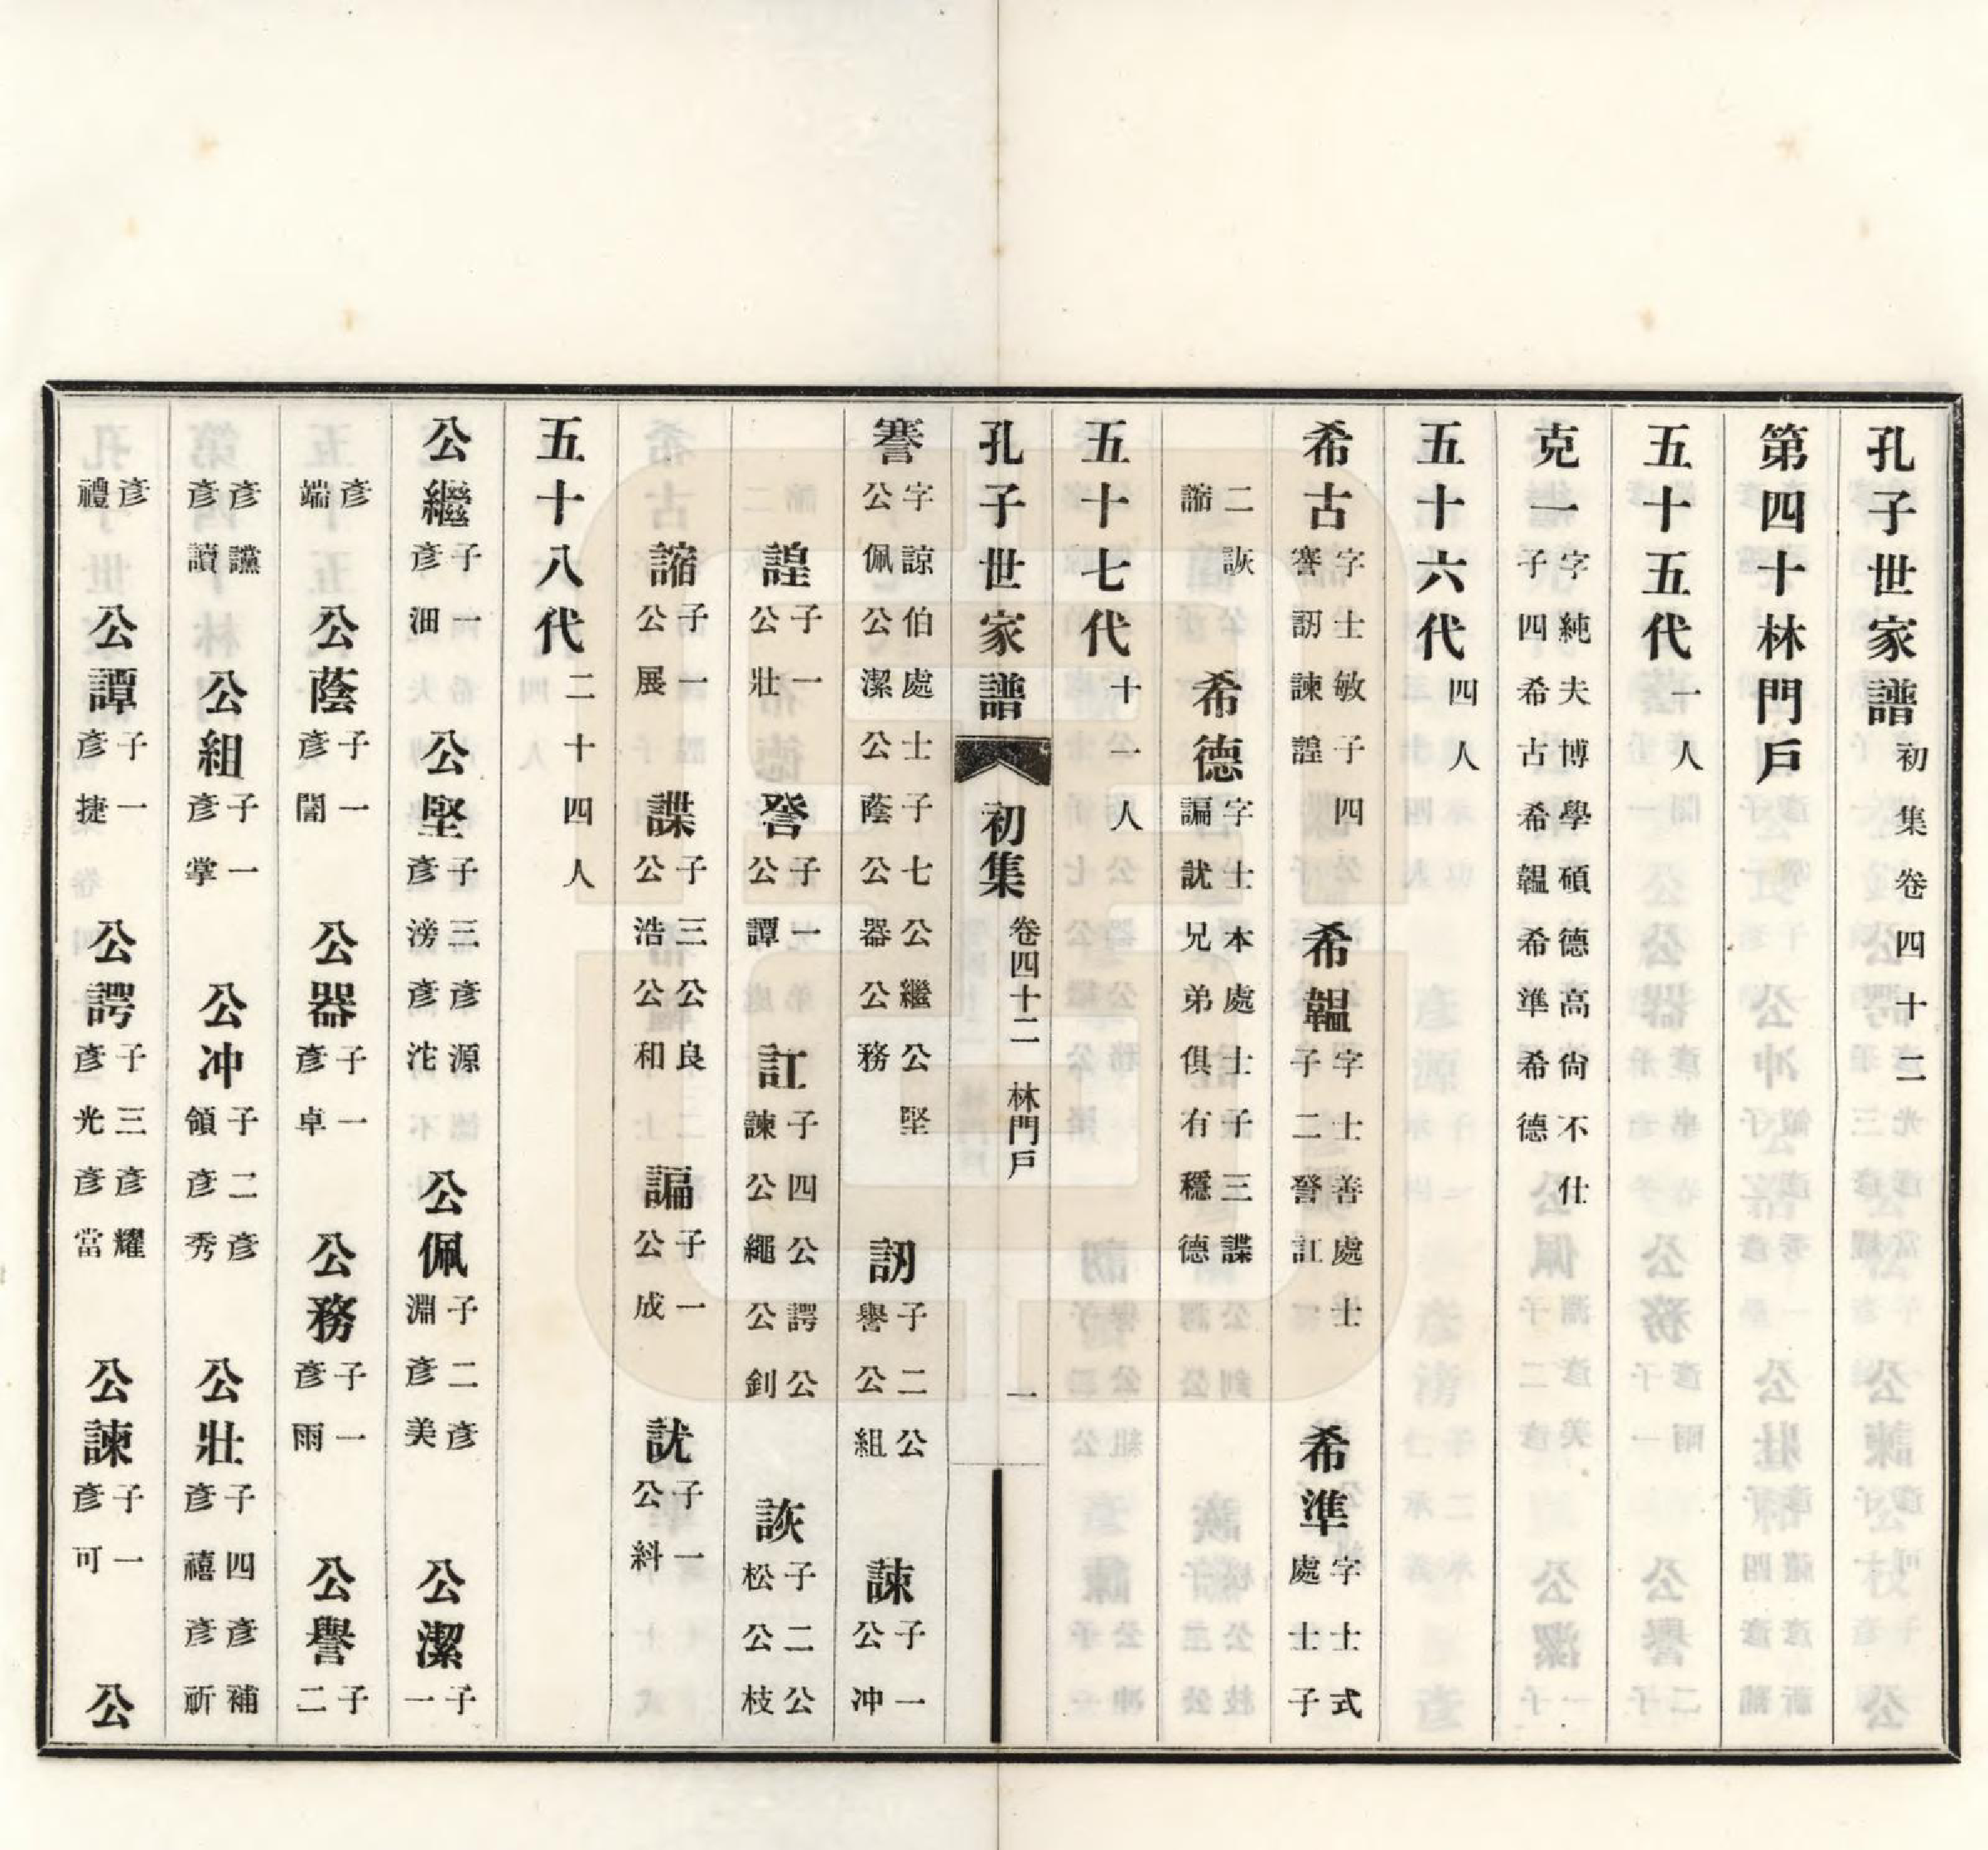 孔子世家譜初集卷四十二
第四十林門戶
五十五代一人
克一字純夫博學碩德高尙不仕子四希古希韞希準希德
五十六代四人
希古字士敏子四謇訒諫諻 希韞字士善處士子二諮訌 希準字士式處士子
二詼諦 希德字士本處士子三諜諞訧兄弟俱有穩德
五十七代十一人
孔子世家譜 初集 卷四十二 林門戶 一
謇字諒伯處士子七公繼公堅公佩公潔公蔭公器公務 訒子二公譽公組 諫子一公冲
諻子一公壯 詧子一公譚 訌子四公諤公諫公繩公釗 詼子二公松公枝
諦子一公展 諜子三公良公浩公和 諞子一公成 訧子一公料
五十八代二十四人
公繼子一彥沺 公堅子三彥源彥滂彥沱 公佩子二彥淵彥美 公潔子一
彥端 公蔭子一彥闇 公器子一彥卓 公務子一彥雨 公譽子二
彥讜彥讀 公組子一彥掌 公冲子二彥領彥秀 公壯子四彥補彥禧彥祈
彥禮 公譚子一彥捷 公諤子三彥耀彥光彥當 公諫子一彥可 公